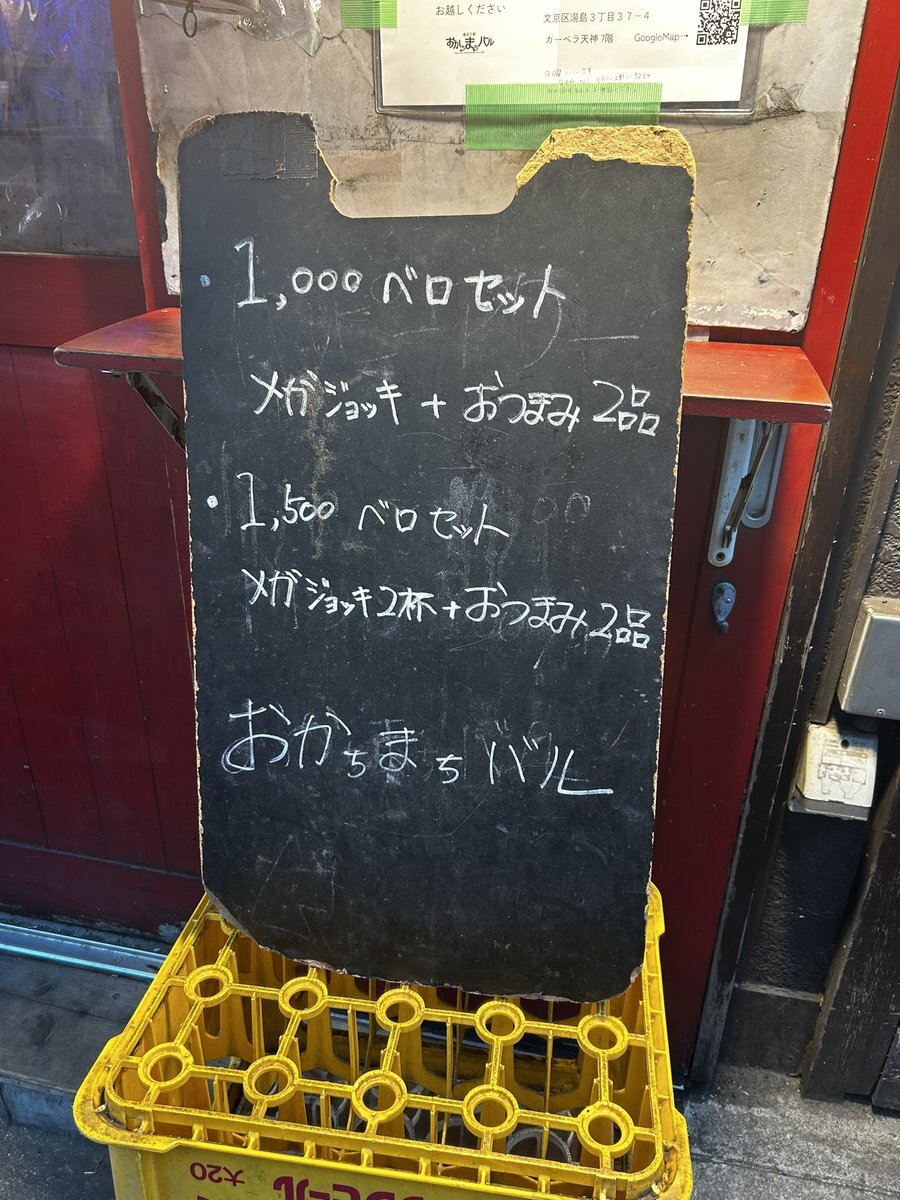 お越しください
文京区湯島3丁目37-4
ガーベラ天神7階 GoogleMap→
おかちまちバル
1,000 ベロセット
メガジョッキ + おつまみ 2品
1,500 ベロセット
メガジョッキ2杯 + おつまみ 2品
おかちまちバル
大20
ビール